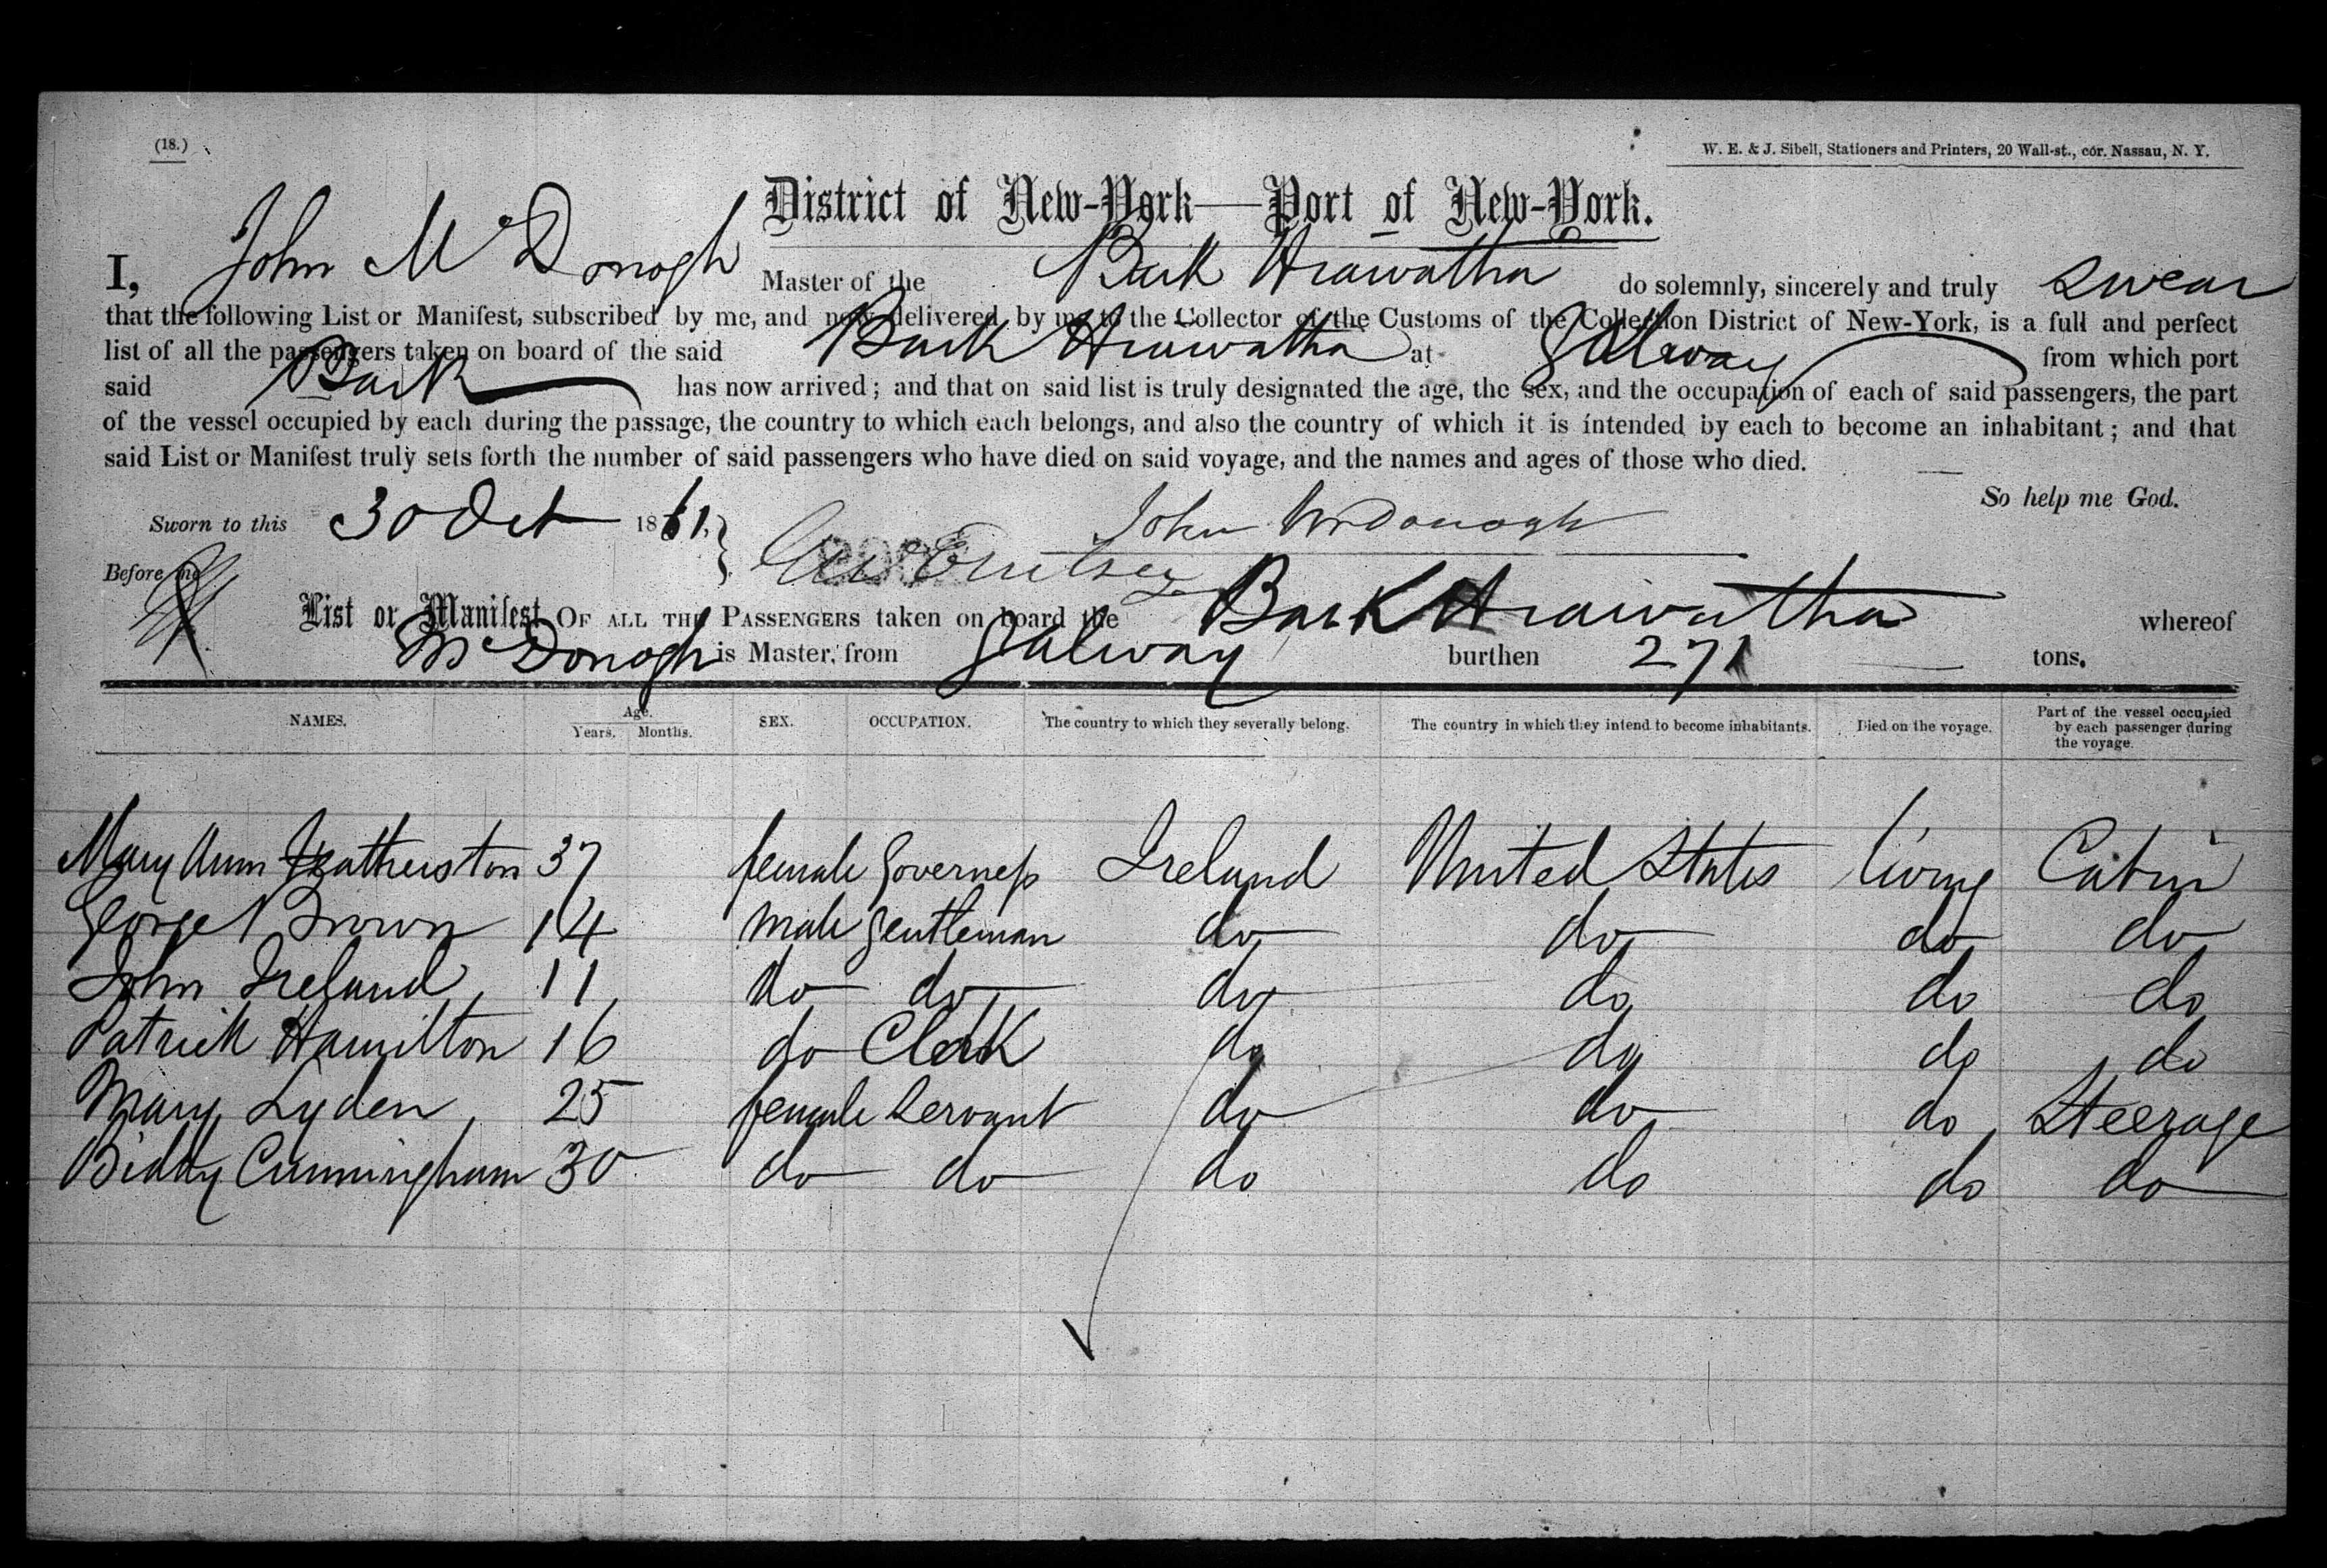 (18.)
W. E. & J. Sibell, Stationers and Printers, 20 Wall-st., cor. Nassau, N. Y.
District of New-York—Port of New-York.
I, John McDonogh Master of the Bark Hiawatha do solemnly, sincerely and truly swear
that the following List or Manifest, subscribed by me, and now delivered by me to the Collector of the Customs of the Collection District of New-York, is a full and perfect
list of all the passengers taken on board of the said Bark Hiawatha at Galway from which port
said Bark has now arrived; and that on said list is truly designated the age, the sex, and the occupation of each of said passengers, the part
of the vessel occupied by each during the passage, the country to which each belongs, and also the country of which it is intended by each to become an inhabitant; and that
said List or Manifest truly sets forth the number of said passengers who have died on said voyage, and the names and ages of those who died.
So help me God.
Sworn to this 30 Oct 1861. John McDonogh
Before me
List or Manifest OF ALL THE PASSENGERS taken on board the Bark Hiawatha whereof
McDonogh is Master, from Galway burthen 271 tons.
NAMES. Age. Years. Months. SEX. OCCUPATION. The country to which they severally belong. The country in which they intend to become inhabitants. Died on the voyage. Part of the vessel occupied by each passenger during the voyage.
Mary Ann Featherston 37 female Governess Ireland United States living Cabin
George Brown 14 male gentleman do do do do
John Ireland 11 do do do do do do
Patrick Hamilton 16 do Clerk do do do do
Mary Lyden 25 female Servant do do do Steerage
Biddy Cunningham 30 do do do do do do